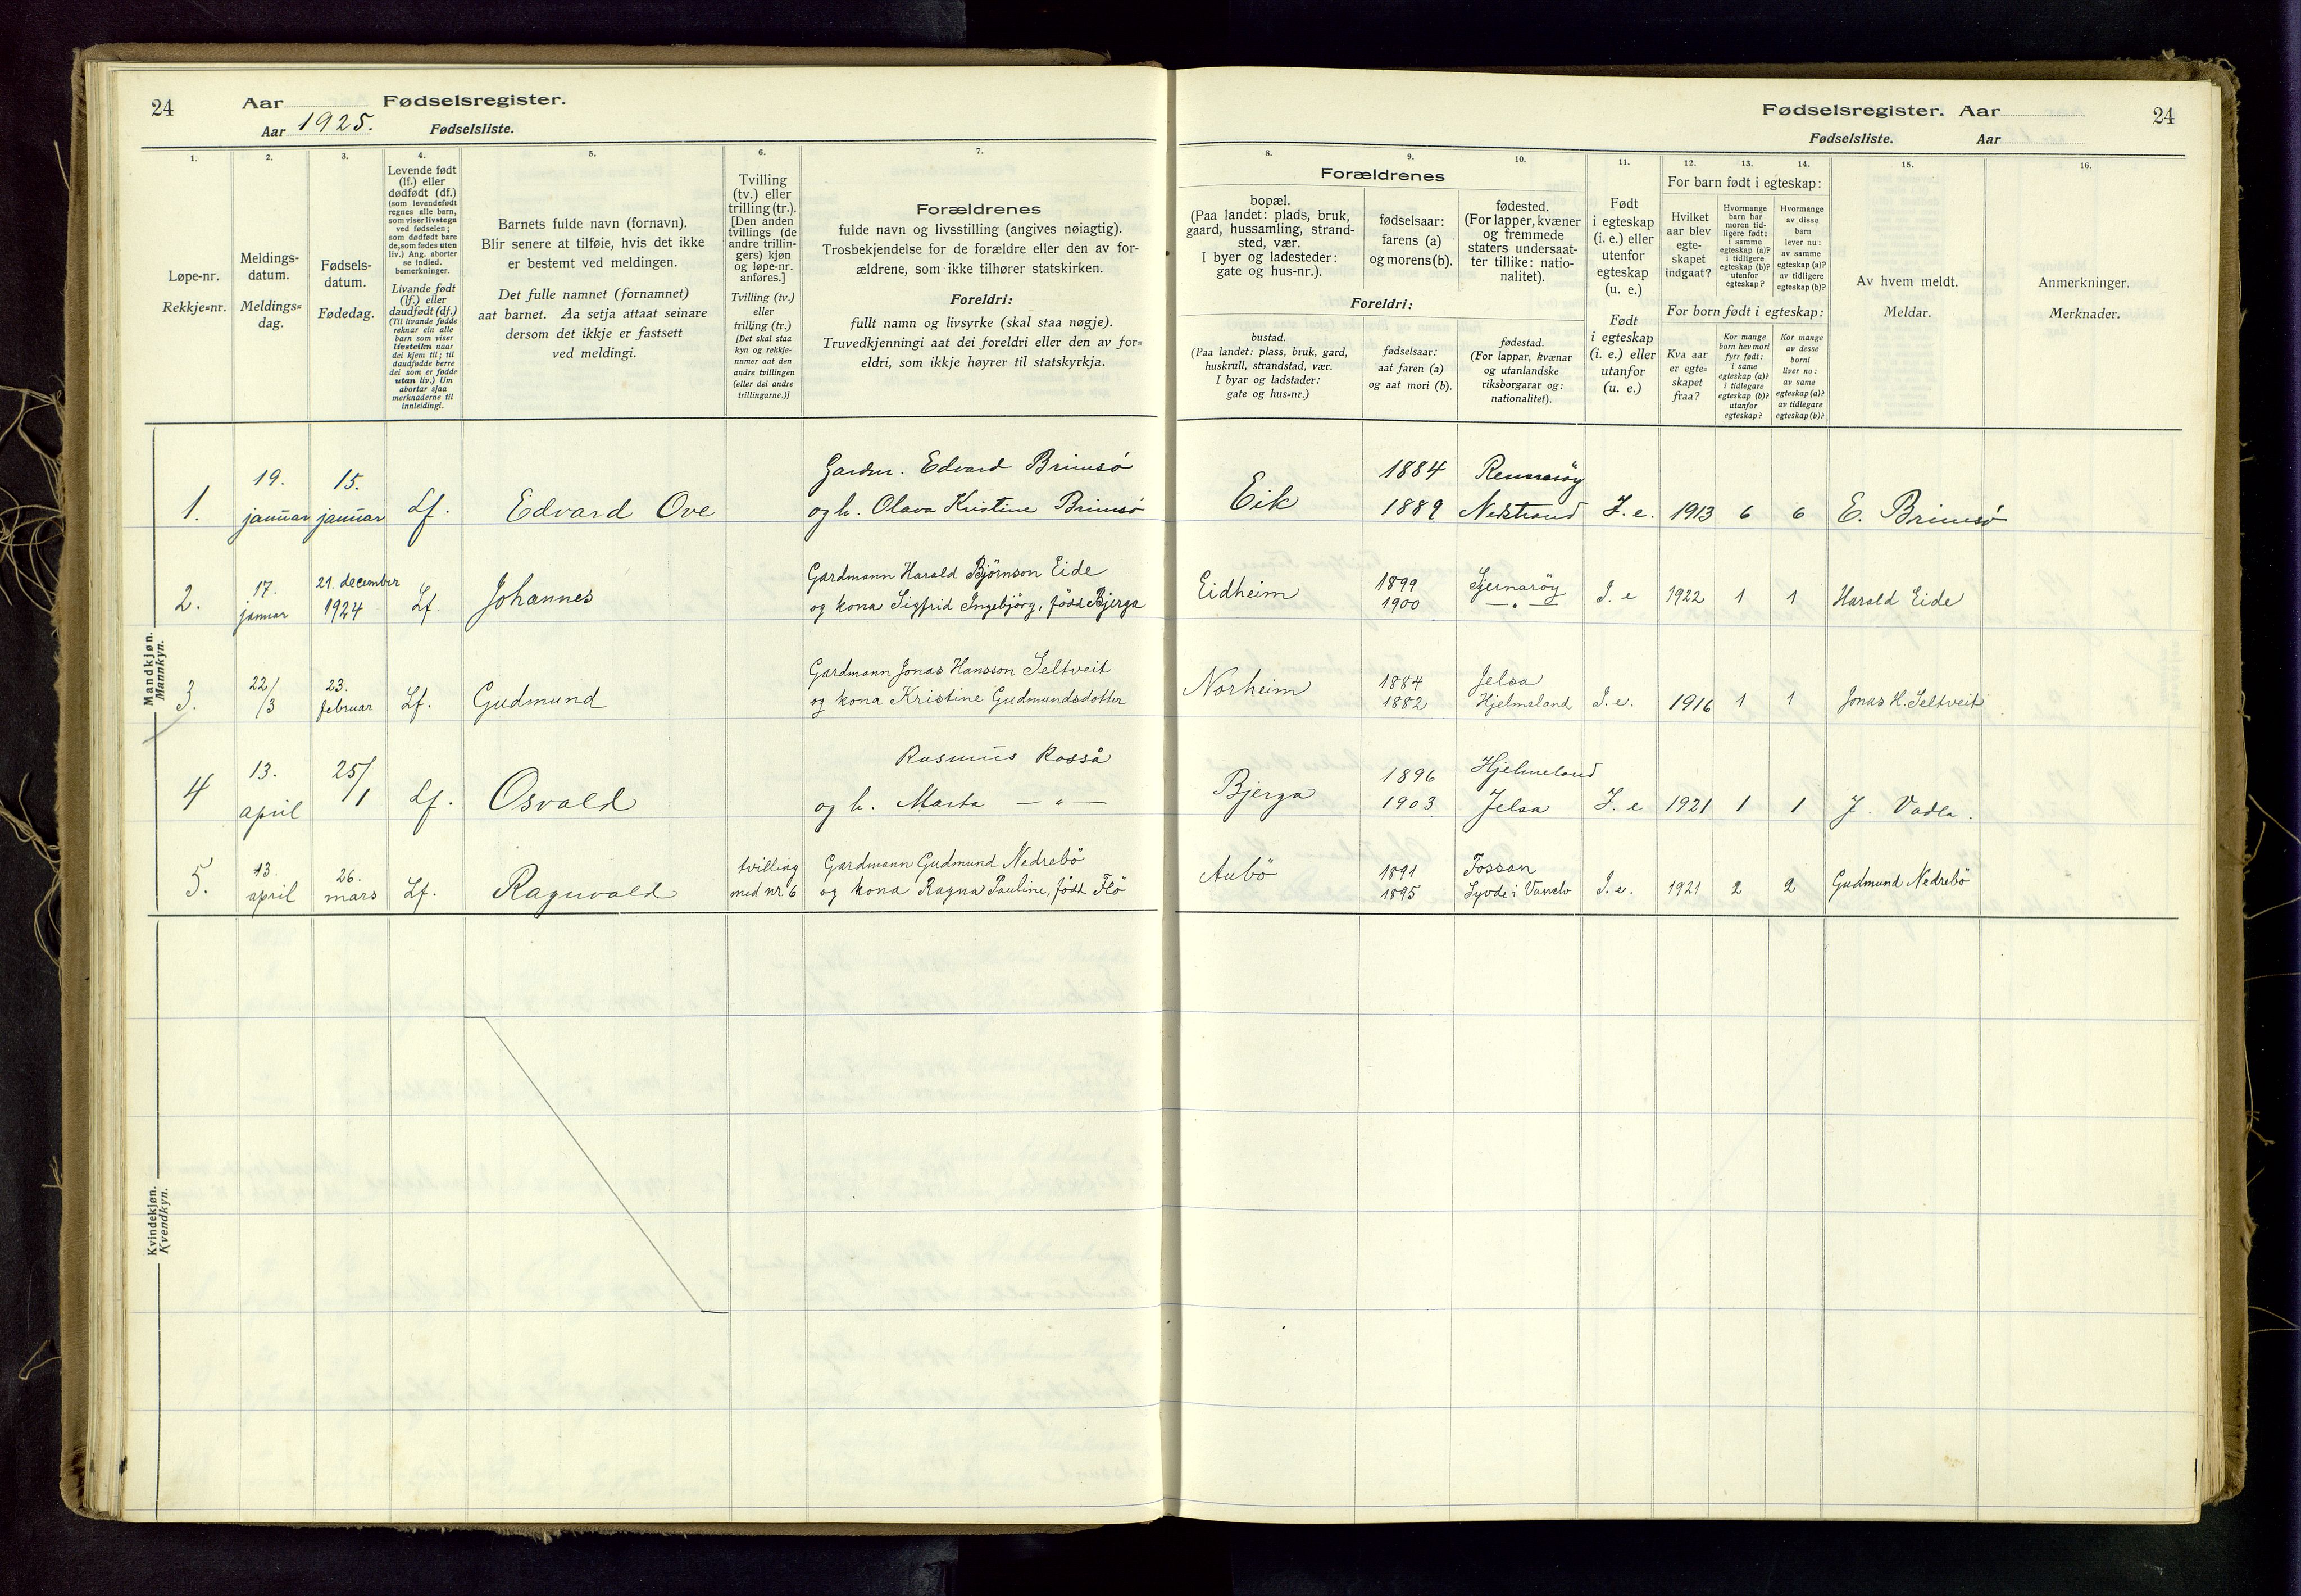 24
Aar Fødselsregister.
Aar 1925. Fødselsliste.
1.
Løpe-nr.
Rekkje=nr.
2.
Meldings-
datum.
Meldings=
dag.
3.
Fødsels-
datum.
Fødedag.
4.
Levende født
(lf.) eller
dødfødt (df.)
(som levendefødt
regnes alle barn,
som viser livstegn
ved fødselen;
som dødfødt bare
de, som fødes uten
liv.) Ang. aborter
se indled.
bemerkninger.
Livande født
(lf.) eller
daudfødt (df.)
(Til livande fødde
reknar ein alle
barn som viser
livsteikn naar
dei kjem til; til
daudfødde berre
dei som er fødde
utan liv.) Um
abortar sjaa
merknaderne til
innleidingi.
5.
Barnets fulde navn (fornavn).
Blir senere at tilføie, hvis det ikke
er bestemt ved meldingen.
Det fulle namnet (fornamnet)
aat barnet. Aa setja attaat seinare
dersom det ikkje er fastsett
ved meldingi.
6.
Tvilling
(tv.) eller
trilling (tr.).
[Den anden
tvillings (de
andre trillin-
gers) kjøn
og løpe-nr.
anføres.]
Tvilling (tv.)
eller
trilling (tr.)
[Det skal staa
kyn og rekkje-
numer aat den
andre tvillingen
(eller dei andre
trillingarne.)]
7.
Forældrenes
fulde navn og livsstilling (angives nøiagtig).
Trosbekjendelse for de forældre eller den av for-
ældrene, som ikke tilhører statskirken.
Foreldri:
fullt namn og livsyrke (skal staa nøgje).
Truvedkjenningi aat dei foreldri eller den av for=
eldri, som ikkje høyrer til statskyrkja.
Mandkjøn.
Mannkyn.
1.
19.
januar
15.
januar
Lf.
Edvard Ove
Gardm. Edvard Brimsö
og h. Olava Kristine Brimsö
2.
17.
januar
21. december
1924
Lf.
Johannes
Gardmann Harald Bjørnson Eide
og kona Sigfrid Ingebjörg, född Bjerga
3.
22/
/3
23.
februar
Lf.
Gudmund
Gardmann Jonas Hansson Seltveit
og kona Kristine Gudmundsdotter
4
13.
april
25/
/1
Lf.
Osvald
Rasmus Rosså
og h. Marta — " —
5.
13.
april
26.
mars
Lf.
Ragnvald
tvilling
med nr. 6
Gardmann Gudmund Nedrebö
og kona Ragna Pauline, född Flö
Kvindekjøn.
Kvendkyn.
Fødselsregister. Aar
24
Fødselsliste. Aar
8.
Forældrenes
bopæl.
(Paa landet: plads, bruk,
gaard, hussamling, strand-
sted, vær.
I byer og ladesteder:
gate og hus-nr.).
9.
fødselsaar:
farens (a)
og morens (b).
10.
fødested.
(For lapper, kvæner
og fremmede
staters undersaat-
ter tillike: natio-
nalitet).
Foreldri:
bustad.
(Paa landet: plass, bruk, gard,
huskrull, strandstad, vær.
I byar og ladstader:
gate og hus=nr.)
fødselsaar:
aat faren (a)
og aat mori (b).
fødestad.
(For lappar, kvænar
og utanlandske
riksborgarar og:
nationalitet).
11.
Født
i egteskap
(i. e.) eller
utenfor
egteskap
(u. e.)
Født
i egteskap
(i. e.) eller
utanfor
(u. e.)
12. 13. 14.
For barn født i egteskap:
Hvilket
aar blev
egte-
skapet
indgaat?
Hvormange
barn har
moren tid-
ligere født:
i samme
egteskap (a)?
i tidligere
egteskap (b)?
utenfor
egteskap?
Hvormange
av disse
barn
lever nu:
av samme
egteskap (a)?
av tidligere
egteskap (b)?
For born født i egteskap:
Kva aar
er egte=
skapet
fraa?
Kor mange
born hev mori
fyrr født:
i same
egteskap (a)?
i tidlegare
egteskap (b)?
utanfor
egteskap?
Kor mange
av desse
borni
liver no:
av same
egteskap (a)?
av tidlegare
egteskap (b)?
15.
Av hvem meldt.
Meldar.
16.
Anmerkninger.
Merknader.
Eik
1884
1889
Rennesöy
Nedstrand
I. e. 1913 6 6 E. Brimsö
Eidheim
1899
1900
Sjernaröy
— " —
I. e 1922 1 1 Harald Eide
Norheim
1884
1882
Jelsa
Hjelmeland
I. e. 1916 1 1 Jonas H. Seltveit
Bjerga
1896
1903
Hjelmeland
Jelsa
I. e 1921 1 1 J. Vadla.
Aubö
1891
1895
Fossan
Syvde i Vanelv
I. e. 1921 2 2 Gudmund Nedrebö